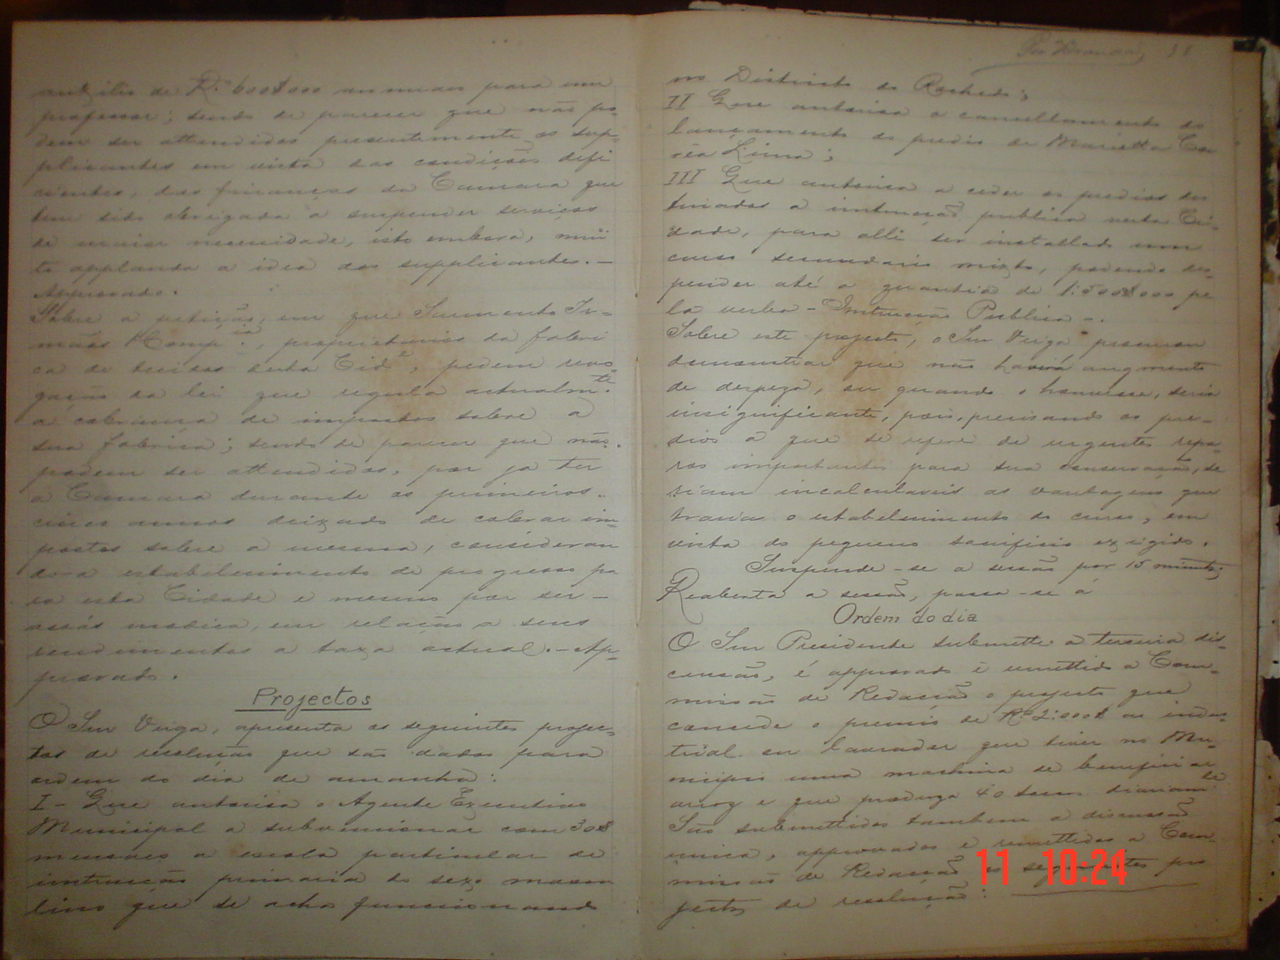 auxilio de Rs 600$000 annuaes para um
professor; sendo de parecer que não po-
dem ser attendidos presentemente os sup-
plicantes em vista das condições defi
cientes, das finanças da Camara que
tem sido obrigada a suspender serviços
de maior necessidade, isto embora, mui
to applauda a idea dos supplicantes. —
Approvado.
Sobre a petição, em que Sarmento Ir-
mãos & Comp.ia, proprietarios da fabri
ca de tecidos desta Cide, pedem revo-
gação da lei que regula actualmte
a cobrança de impostos sobre a
sua fabrica; sendo de parecer que não
podem ser attendidos, por ja ter
a Camara durante os primeiros
cinco annos deixado de cobrar im-
postos sobre a mesma, consideran
do-a estabelecimento de progresso pa
ra esta Cidade e mesmo por ser —
assás modica, em relação a seus
rendimentos a taxa actual. — Ap-
provado.
Projectos
O Snr Veiga, apresenta os seguintes projec-
tos de resolução que são dados para
ordem do dia de amanhã:
I — Que autorisa o Agente Executivo
Municipal a subvencionar com 30$
mensaes a escola particular de
instrucção primaria do sexo mascu
lino que se acha funccionando
38
no Districto do Rochedo;
II Que autorisa o cancellamento do
lançamento do predio de Marietta Cor
rêa Lima;
III Que autorisa a ceder os predios des
tinados a instrucção publica nesta Ci-
dade, para alli ser installado um
curso secundario mixto, podendo des-
pender até a quantia de 1:500$000 pe
la verba — Instrucção Publica —.
Sobre este projecto, o Snr Veiga procurou
demonstrar que não haverá augmento
de despeza, ou quando o houvesse, seria
insignificante, pois, precisando os pre-
dios á que se refere de urgentes repa-
ros importantes para sua conservação, se
riam incalculaveis as vantagens que
traria o estabelecimento do curso, em
vista do pequeno sacrificio exigido.
Suspende-se a sessão por 15 minutos;
Reaberta a sessão, passa-se á
Ordem do dia
O Snr Presidente submette a terceira dis-
cussão, é approvado e remettido a Com-
missão de Redacção o projecto que
concede o premio de Rs 2:000$ ao indus
trial ou lavrador que tiver no Mu-
nicipio uma machina de beneficiar
arroz e que produza 40 saccos diariamte
São submettidos tambem a discussão
unica, approvados e remettidos a Com-
missão de Redacção os seguintes pro
jectos de resolução:
11 10:24